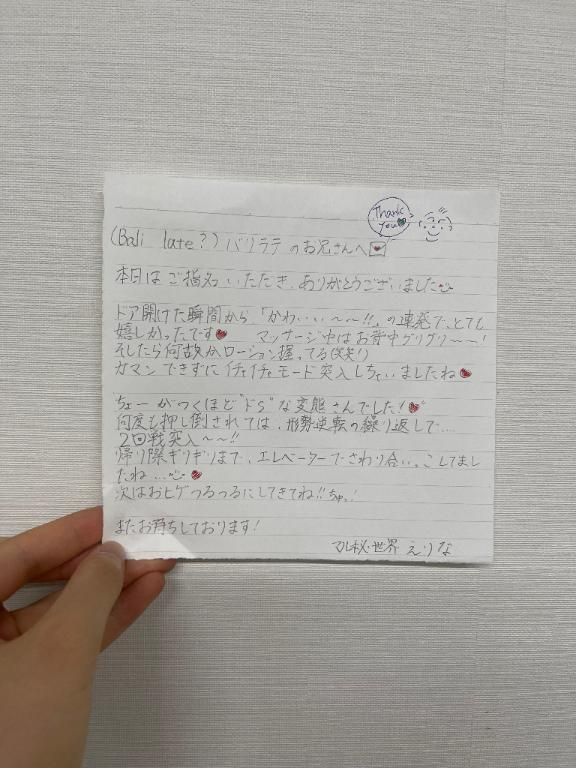 Thank
You
(Bali late?) バリラテ のお兄さんへ
本日はご指名いただき、ありがとうございました
ドア開けた瞬間から「かわいい〜〜!!」の連発で、とても
嬉しかったです マッサージ中はお背中グリグリ〜〜!
そしたら何故かローション握ってる(笑笑!)
ガマンできずにイチャイチャモード突入しちゃいましたね
ちょーがつくほど"ドS"な変態さんでした!
何度も押し倒されては、形勢逆転の繰り返しで…
2回戦突入〜〜!!
帰り際ギリギリまで、エレベーターでさわり合いっこしてまし
たね…
次はおヒゲつるつるにしてきてね!!ちゅっ!
またお待ちしております!
マル秘世界 えりな